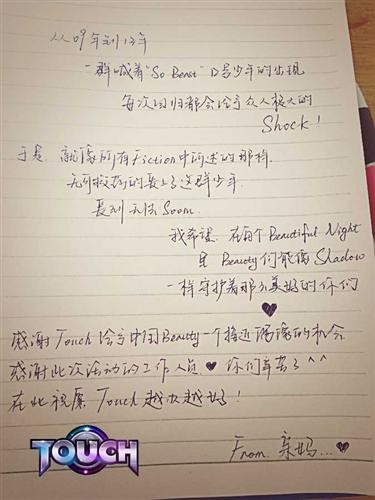 从09年到13年
一群喊着"So Beast"口号少年的出现
每次回归都会给予众人极大的
Shock!
于是, 就像所有Fiction中所述的那样,
无可救药的爱上了这群少年.
直到 Soom.
我希望, 在每个Beautiful Night
里 Beauty们能像Shadow
一样守护着那么美好的你们
♥
感谢Touch给予中国Beauty一个接近偶像的机会
感谢此次活动的工作人员♥你们辛苦了^^
在此祝愿 Touch 越办越好!
TOUCH
From 亲妈...♥